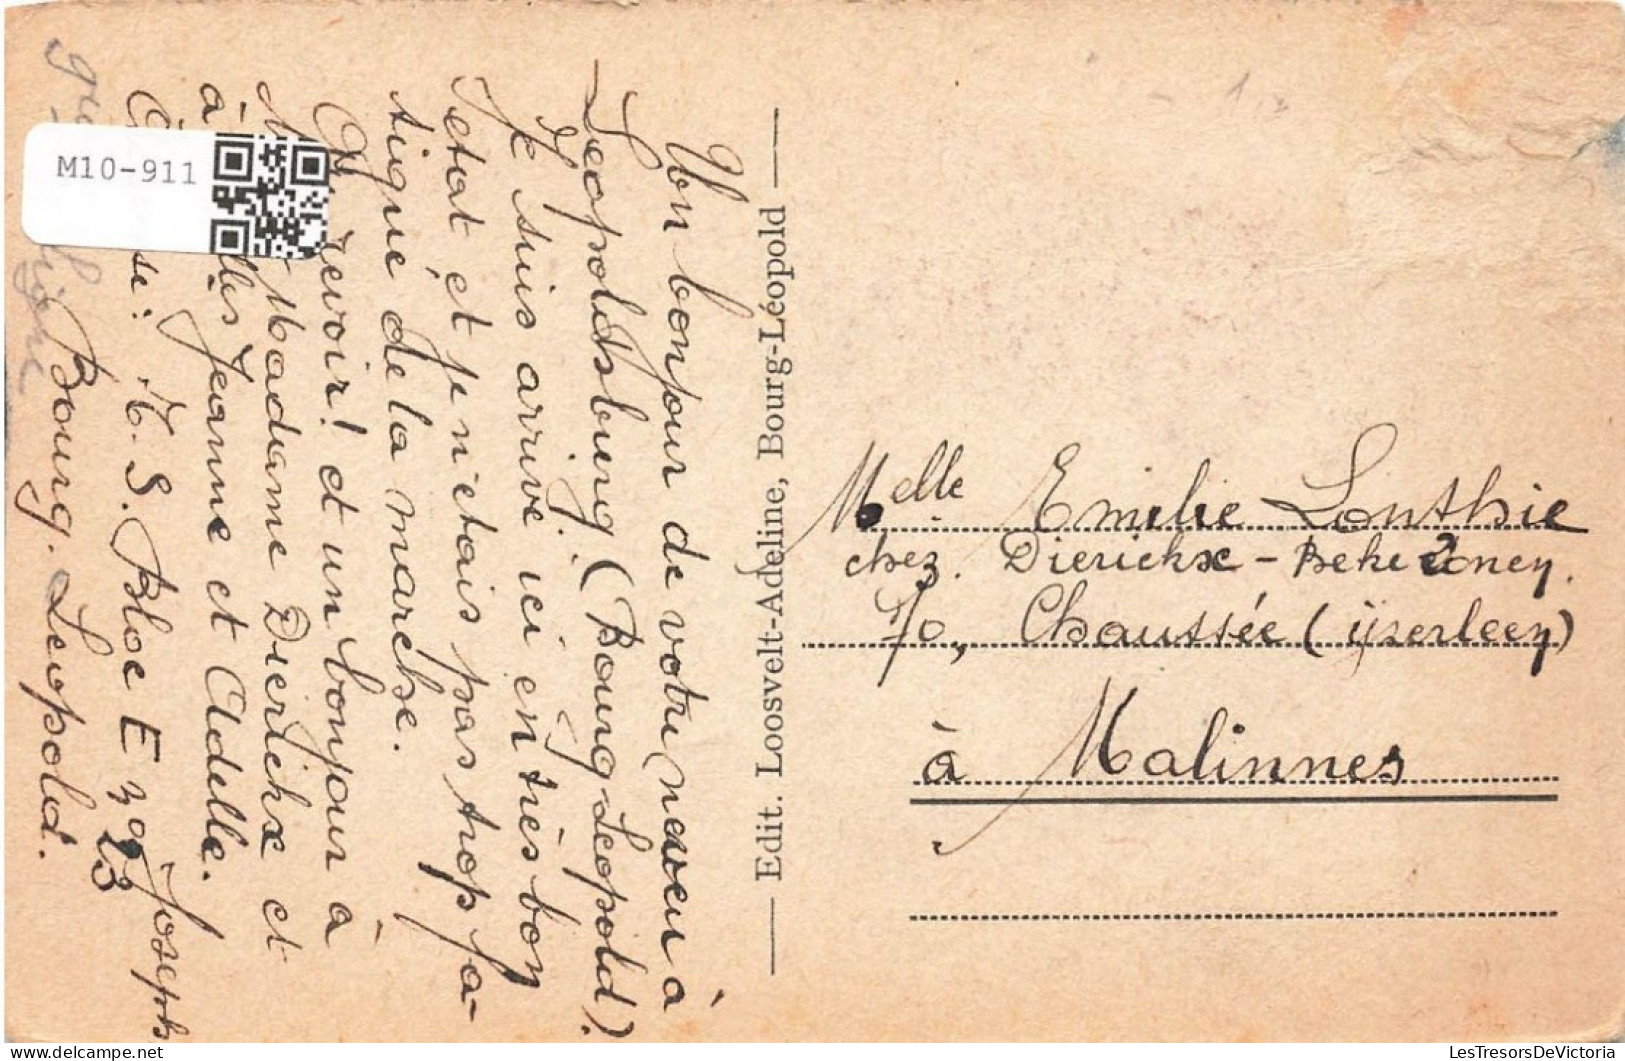 Un bonjour de votre neveu à
Leopoldsburg (Bourg-Léopold).
Je suis arrivé ici en très bon
etat et je n'etais pas trop fa-
tigué de la marche.
Au revoir! et un bonjour à
Madame Dierickx et
à Jeanne et Adelle.
Joseph
M. S. Bloc E
Bourg. Leopold.
M10-911
Edit. Loosvelt-Adeline, Bourg-Léopold
Melle Emilie Lonthie
chez. Dierickx - 
70, Chaussée (ijzerleen)
à Malinnes
LesTresorsDeVictoria